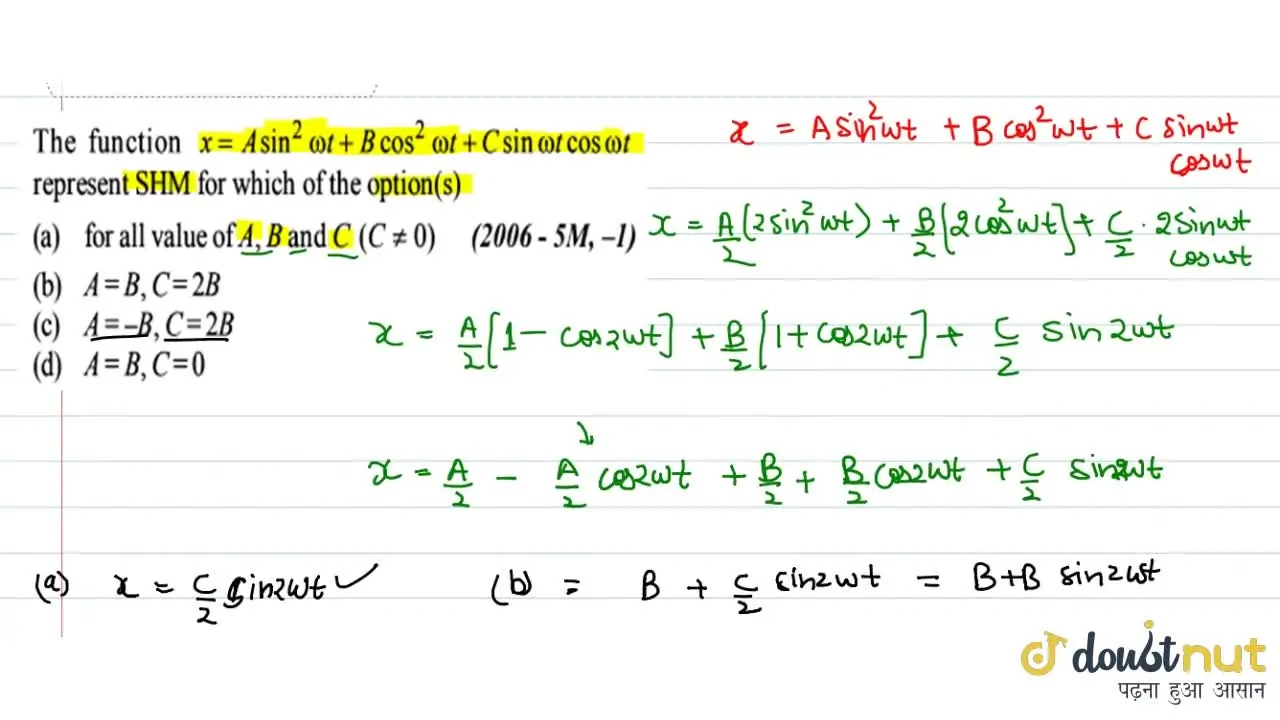 The function x = A sin² ωt + B cos² ωt + C sin ωt cos ωt
represent SHM for which of the option(s)
(a) for all value of A, B and C (C ≠ 0) (2006 - 5M, –1)
(b) A = B, C = 2B
(c) A = –B, C = 2B
(d) A = B, C = 0
x = A sin² ωt + B cos² ωt + C sin ωt
cos ωt
x = A/2 (2 sin² ωt) + B/2 [2 cos² ωt] + C/2 · 2 sin ωt
cos ωt
x = A/2 [1 – cos 2ωt] + B/2 [1 + cos 2ωt] + C/2 sin 2ωt
x = A/2 – A/2 cos 2ωt + B/2 + B/2 cos 2ωt + C/2 sin 2ωt
(a) x = C/2 sin 2ωt ✓ (b) = B + C/2 sin 2ωt = B + B sin 2ωt
doubtnut
पढ़ना हुआ आसान